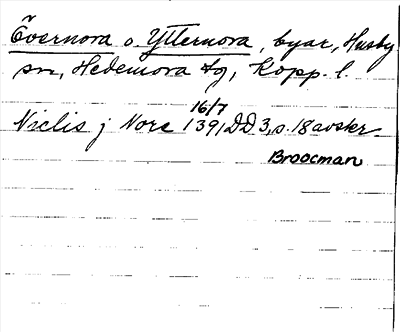 Övernora o. Ytternora, byar, Husby
sn, Hedemora tg, Kopp. l.
Niclis j Nore 16/7 1391 DD 3, s. 18 avskr.
Broocman